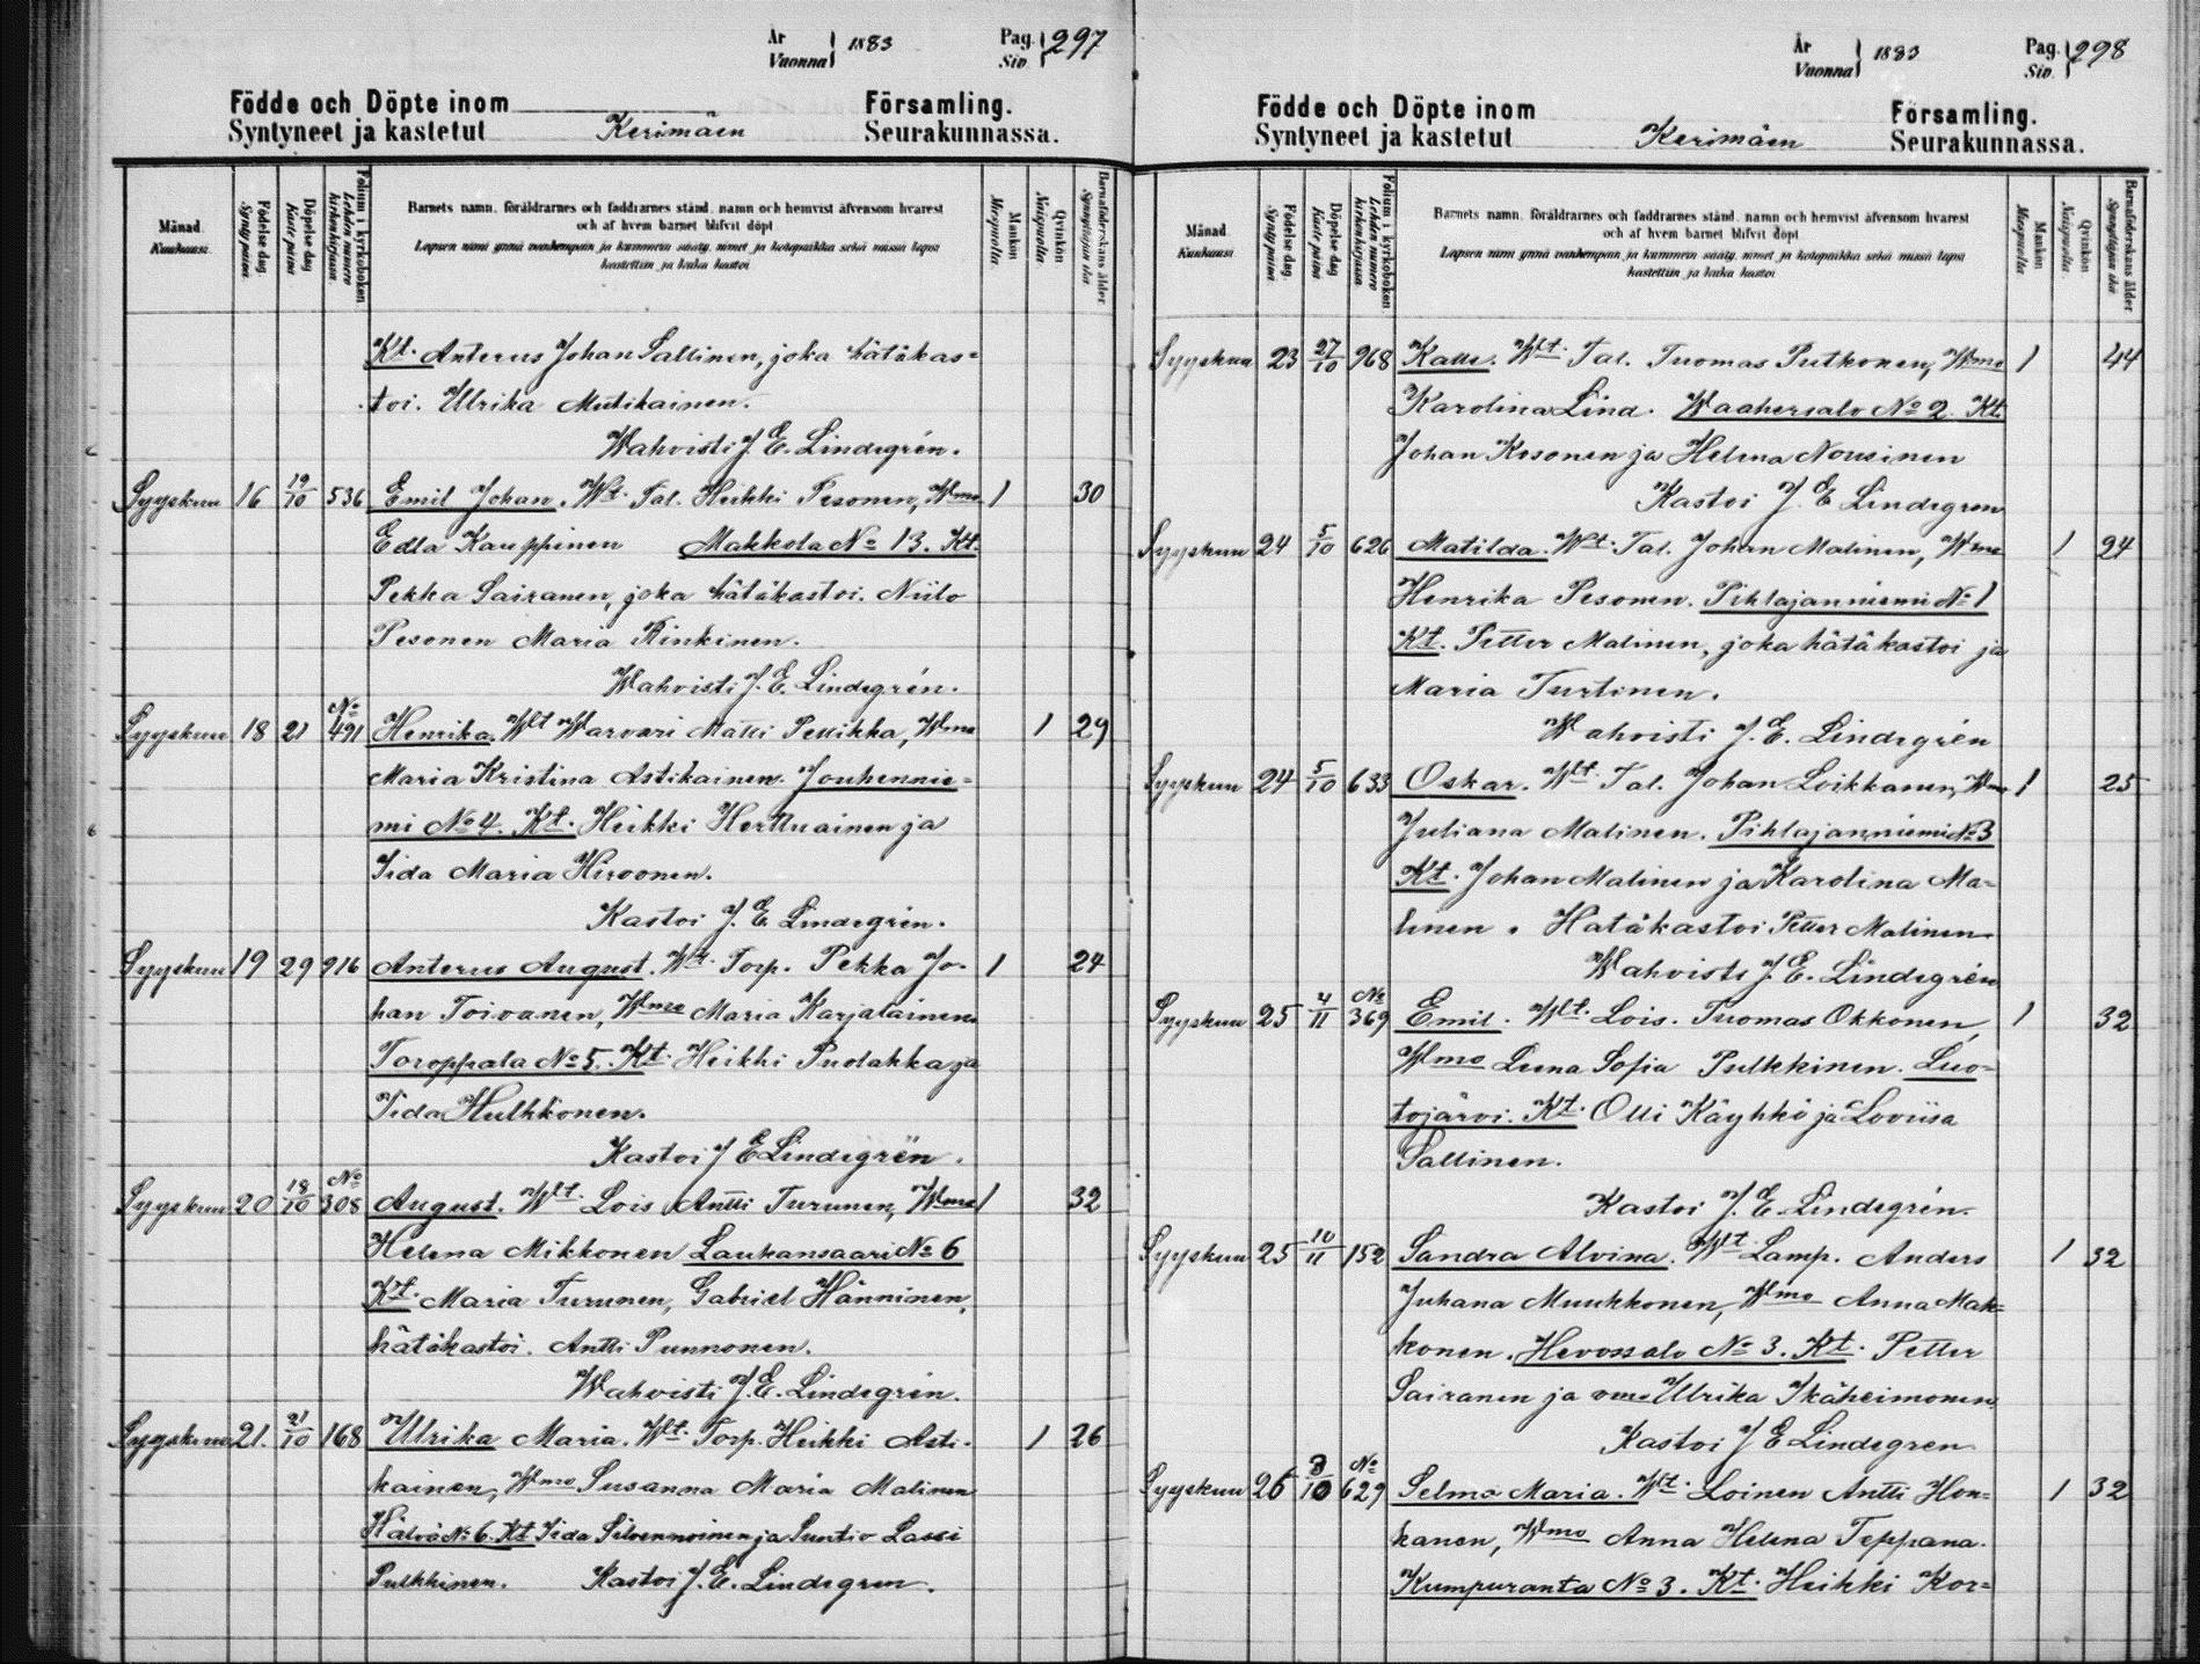 År
Vuonna } 1883
Pag.
Siv. } 297
Födde och Döpte inom Församling.
Syntyneet ja kastetut Kerimäen Seurakunnassa.
Månad.
Kuukausi.
Födelse dag
Synty päivä
Döpelse dag
Kaste päivä
Folium i kyrkoboken
Lehden numero kirkonkirjassa
Barnets namn, föräldrarnes och faddrarnes stånd, namn och hemvist äfvensom hvarest
och af hvem barnet blifvit döpt
Lapsen nimi ynnä vanhempain ja kummein sääty, nimet ja kotopaikka sekä missä lapsi
kastettiin ja kuka kastoi
Mankön
Miespuolia
Qvinkön
Naispuolia
Barnaföderskans ålder
Synnyttäjän ikä
Kt. Anterus Johan Sallinen, joka hätäkas=
toi. Ulrika Mutikainen.
Wahvisti J. E. Lindegrén.
Syyskuu 16 19/10 536 Emil Johan. Wt. Tal. Heikki Pesonen, Wmo 1 30
Edla Kauppinen Makkola No 13. Kt.
Pekka Sairanen, joka hätäkastoi. Niilo
Pesonen Maria Rinkinen.
Wahvisti J. E. Lindegrén.
Syyskuu 18 21 No 491 Henrika. Wlt Warvari Matti Pellikka, Wmo 1 29
Maria Kristina Astikainen. Jouhennie=
mi No 4. Kt. Heikki Herttuainen ja
Iida Maria Hirvonen.
Kastoi J. E. Lindegrén.
Syyskuu 19 29 916 Anterus August. Wt. Torp. Pekka Jo- 1 24
han Toivanen, Wmo Maria Karjalainen
Toroppala No 5. Kt. Heikki Pudakka ja
Iida Hulkkonen.
Kastoi J E Lindegrén.
Syyskuu 20 18/10 No 308 August. Wlt. Lois Antti Turunen, Wmo 1 32
Helena Mikkonen Laukansaari No 6
Kt. Maria Turunen, Gabriel Hänninen,
hätäkastoi. Antti Punnonen.
Wahvisti J. E. Lindegrén.
Syyskuu 21. 21/10 168 Ulrika Maria. Wlt. Torp. Heikki Asti- 1 26
kainen, Wmo Susanna Maria Malinen
Hälvä No 6. Kt Iida Silvennoinen ja Suntio Lassi
Pulkkinen. Kastoi J. E. Lindegren.
År
Vuonna } 1883
Pag.
Siv. } 298
Födde och Döpte inom Församling.
Syntyneet ja kastetut Kerimäen Seurakunnassa.
Månad
Kuukausi
Födelse dag
Synty päivä
Döpelse dag
Kaste päivä
Folium i kyrkoboken
Lehden numero kirkonkirjassa
Barnets namn, föräldrarnes och faddrarnes stånd, namn och hemvist äfvensom hvarest
och af hvem barnet blifvit döpt
Lapsen nimi ynnä vanhempain ja kummein sääty, nimet ja kotopaikka sekä missä lapsi
kastettiin ja kuka kastoi
Mankön
Miespuolia
Qvinkön
Naispuolia
Barnaföderskans ålder
Synnyttäjän ikä
Syyskuu 23 27/10 968 Kalle. Wlt. Tal. Tuomas Putkonen, Wmo 1 44
Karolina Lind. Waahersalo No 2. Kt.
Johan Kosonen ja Helena Nousinen
Kastoi J. E Lindegren
Syyskuu 24 5/10 626 Matilda. Wt. Tal. Johan Malinen, Wmo 1 24
Henrika Pesonen. Pihlajanniemi No 1
Kt. Petter Malinen, joka hätäkastoi ja
Maria Turtinen.
Wahvisti J. E. Lindegrén
Syyskuu 24 5/10 633 Oskar. Wlt. Tal. Johan Loikkanen, Wmo 1 25
Juliana Malinen. Pihlajanniemi No 3
Kt. Johan Malinen ja Karolina Ma-
linen. Hätäkastoi Petter Malinen
Wahvisti J. E. Lindegrén
Syyskuu 25 4/11 No 369 Emil. Wlt. Lois. Tuomas Okkonen, 1 32
Wmo Leena Sofia Pulkkinen. Luo=
tojärvi. Kt. Olli Käyhkö ja Loviisa
Sallinen.
Kastoi J. E. Lindegrén.
Syyskuu 25 10/11 152 Sandra Alvina. Wlt. Lamp. Anders 1 32
Juhana Muukkonen, Wmo Anna Mak=
konen. Hevossalo No 3. Kt. Petter
Sairanen ja vmo Ulrika Ikäheimonen
Kastoi J E Lindegren
Syyskuu 26 3/10 No 629 Selma Maria. Wlt. Loinen Antti Hon= 1 32
kanen, Wmo Anna Helena Teppana.
Kumpuranta No 3. Kt. Heikki Kor=